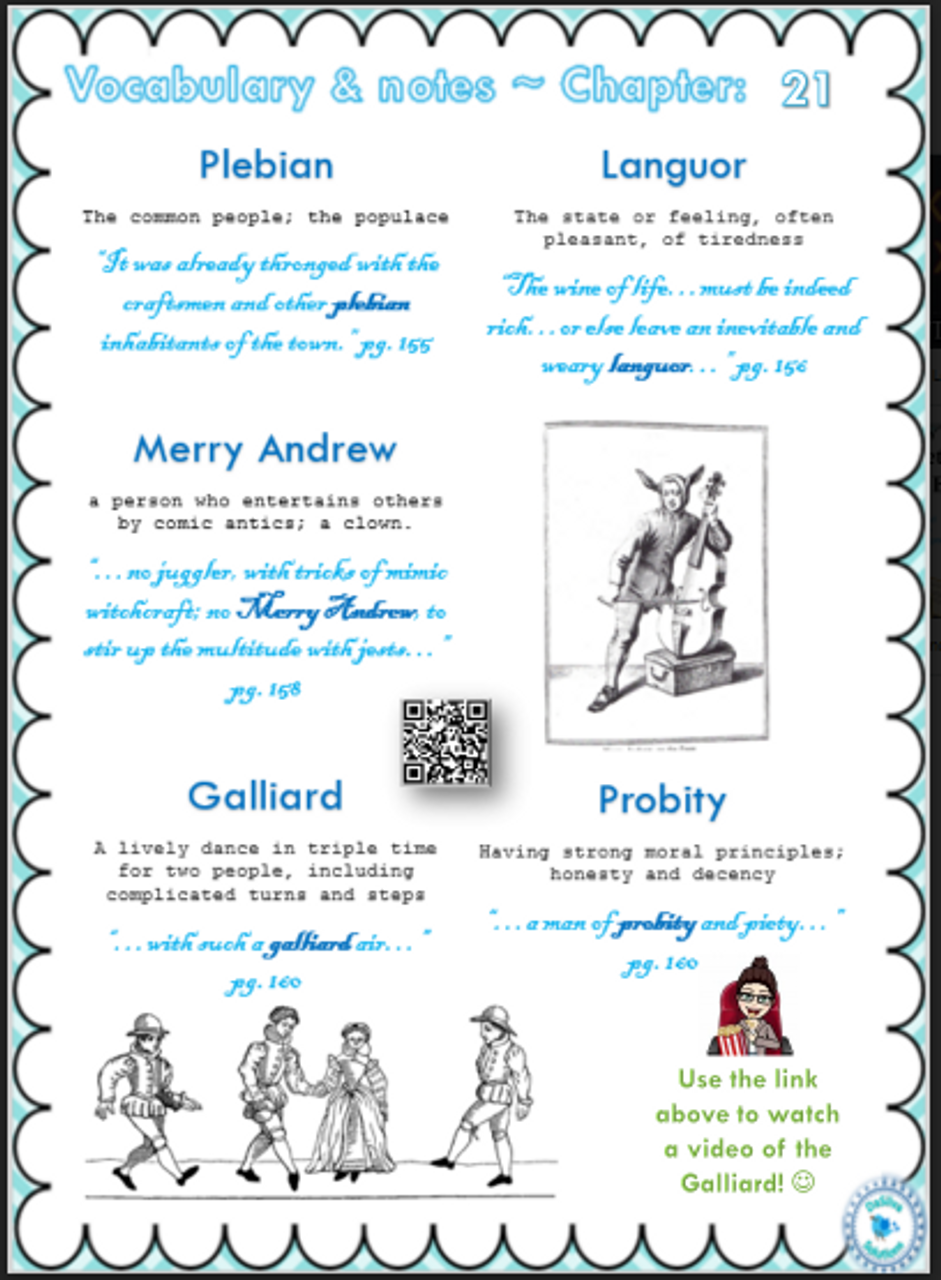 Vocabulary & notes ~ Chapter: 21
Plebian
The common people; the populace
"It was already thronged with the
craftsmen and other plebian
inhabitants of the town." pg. 155
Languor
The state or feeling, often
pleasant, of tiredness
"The wine of life...must be indeed
rich...or else leave an inevitable and
weary languor..." pg. 156
Merry Andrew
a person who entertains others
by comic antics; a clown.
"...no juggler, with tricks of mimic
witchcraft; no Merry Andrew, to
stir up the multitude with jests..."
pg. 158
Galliard
A lively dance in triple time
for two people, including
complicated turns and steps
"...with such a galliard air..."
pg. 160
Probity
Having strong moral principles;
honesty and decency
"...a man of probity and piety..."
pg. 160
Use the link
above to watch
a video of the
Galliard! ☺
Solutions